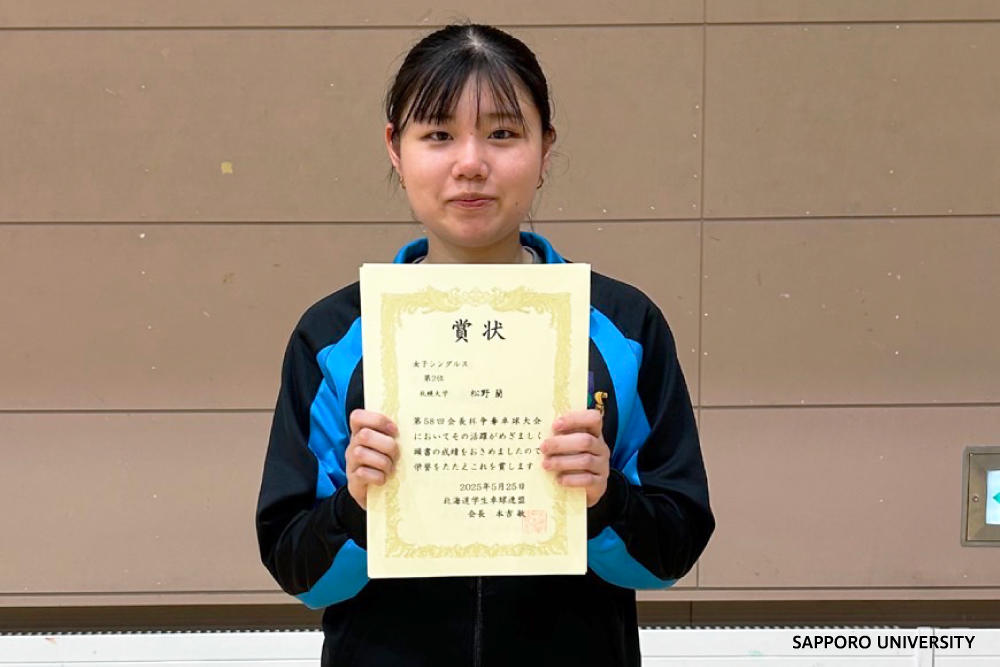 賞状
女子シングルス
第2位
札幌大学 松野 蘭
第58回会長杯争奪卓球大会
においてその活躍がめざましく
頭書の成績をおさめましたので
栄誉をたたえこれを賞します
2025年5月25日
北海道学生卓球連盟
会長 本吉 敏
SAPPORO UNIVERSITY